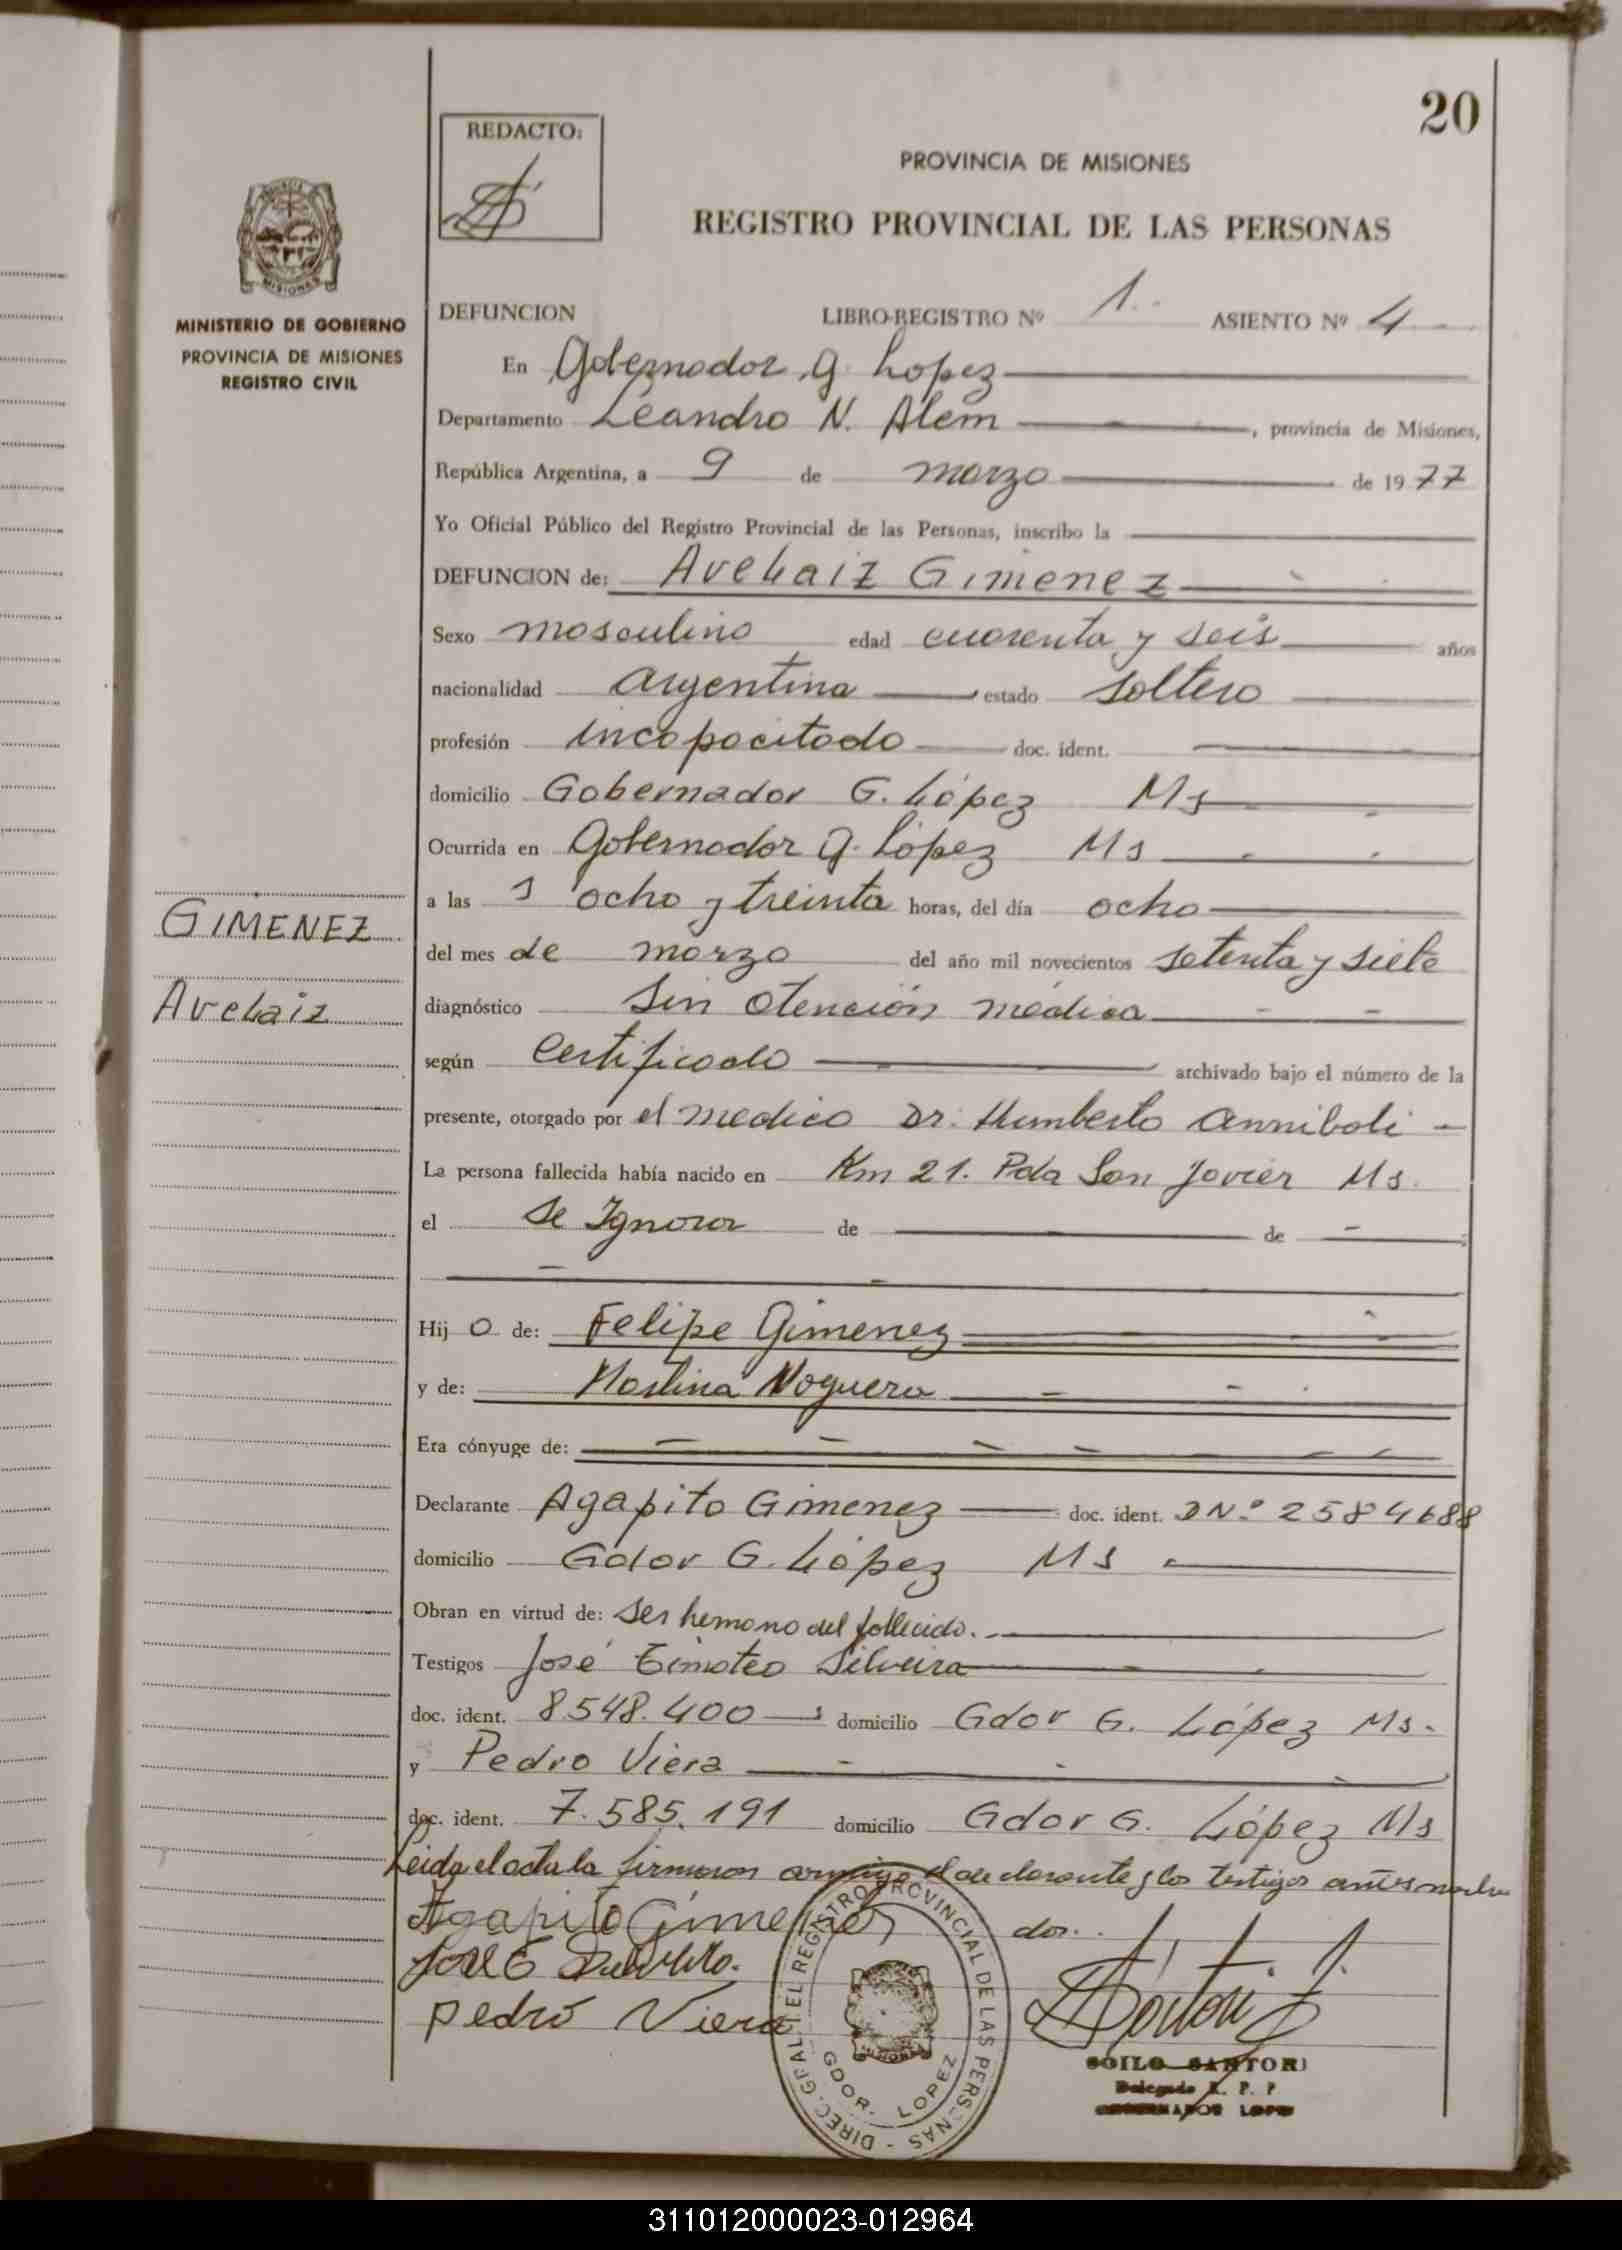 20
REDACTO:
PROVINCIA DE MISIONES
REGISTRO PROVINCIAL DE LAS PERSONAS
MISIONES
MINISTERIO DE GOBIERNO
PROVINCIA DE MISIONES
REGISTRO CIVIL
DEFUNCION LIBRO-REGISTRO Nº 1. ASIENTO Nº 4
En Gobernador G. Lopez
Departamento Leandro N. Alem, provincia de Misiones,
República Argentina, a 9 de marzo de 1977
Yo Oficial Público del Registro Provincial de las Personas, inscribo la
DEFUNCION de: Avelaiz Gimenez
Sexo masculino edad cuarenta y seis años
nacionalidad argentina estado soltero
profesión incapacitado doc. ident.
domicilio Gobernador G. López Ms
Ocurrida en Gobernador G. López Ms
a las ocho y treinta horas, del día ocho
GIMENEZ
del mes de marzo del año mil novecientos setenta y siete
Avelaiz
diagnóstico Sin atención médica
según Certificado archivado bajo el número de la
presente, otorgado por el medico Dr. Humberto Anniboli
La persona fallecida había nacido en Km 21. Pda San Javier Ms.
el Se Ignora de de
Hijo de: Felipe Gimenez
y de: Martina Noguera
Era cónyuge de:
Declarante Agapito Gimenez doc. ident. DNº 2584688
domicilio Gdor G. López Ms
Obran en virtud de: Ser hermano del fallecido.
Testigos José Timoteo Silveira
doc. ident. 8.548.400 domicilio Gdor G. López Ms.
y Pedro Viera
doc. ident. 7.585.191 domicilio Gdor G. López Ms
Leida el acta la firmaron conmigo el declarante y los testigos antes nombra
dos.
Agapito Gimenez
José
Pedro Viera
DIREC. GRAL. DEL REGISTRO PROVINCIAL DE LAS PERSONAS
MISIONES
GDOR. LOPEZ
SOILO SANTORI
Delegado R. P. P
GOBERNADOR LOPEZ
311012000023-012964